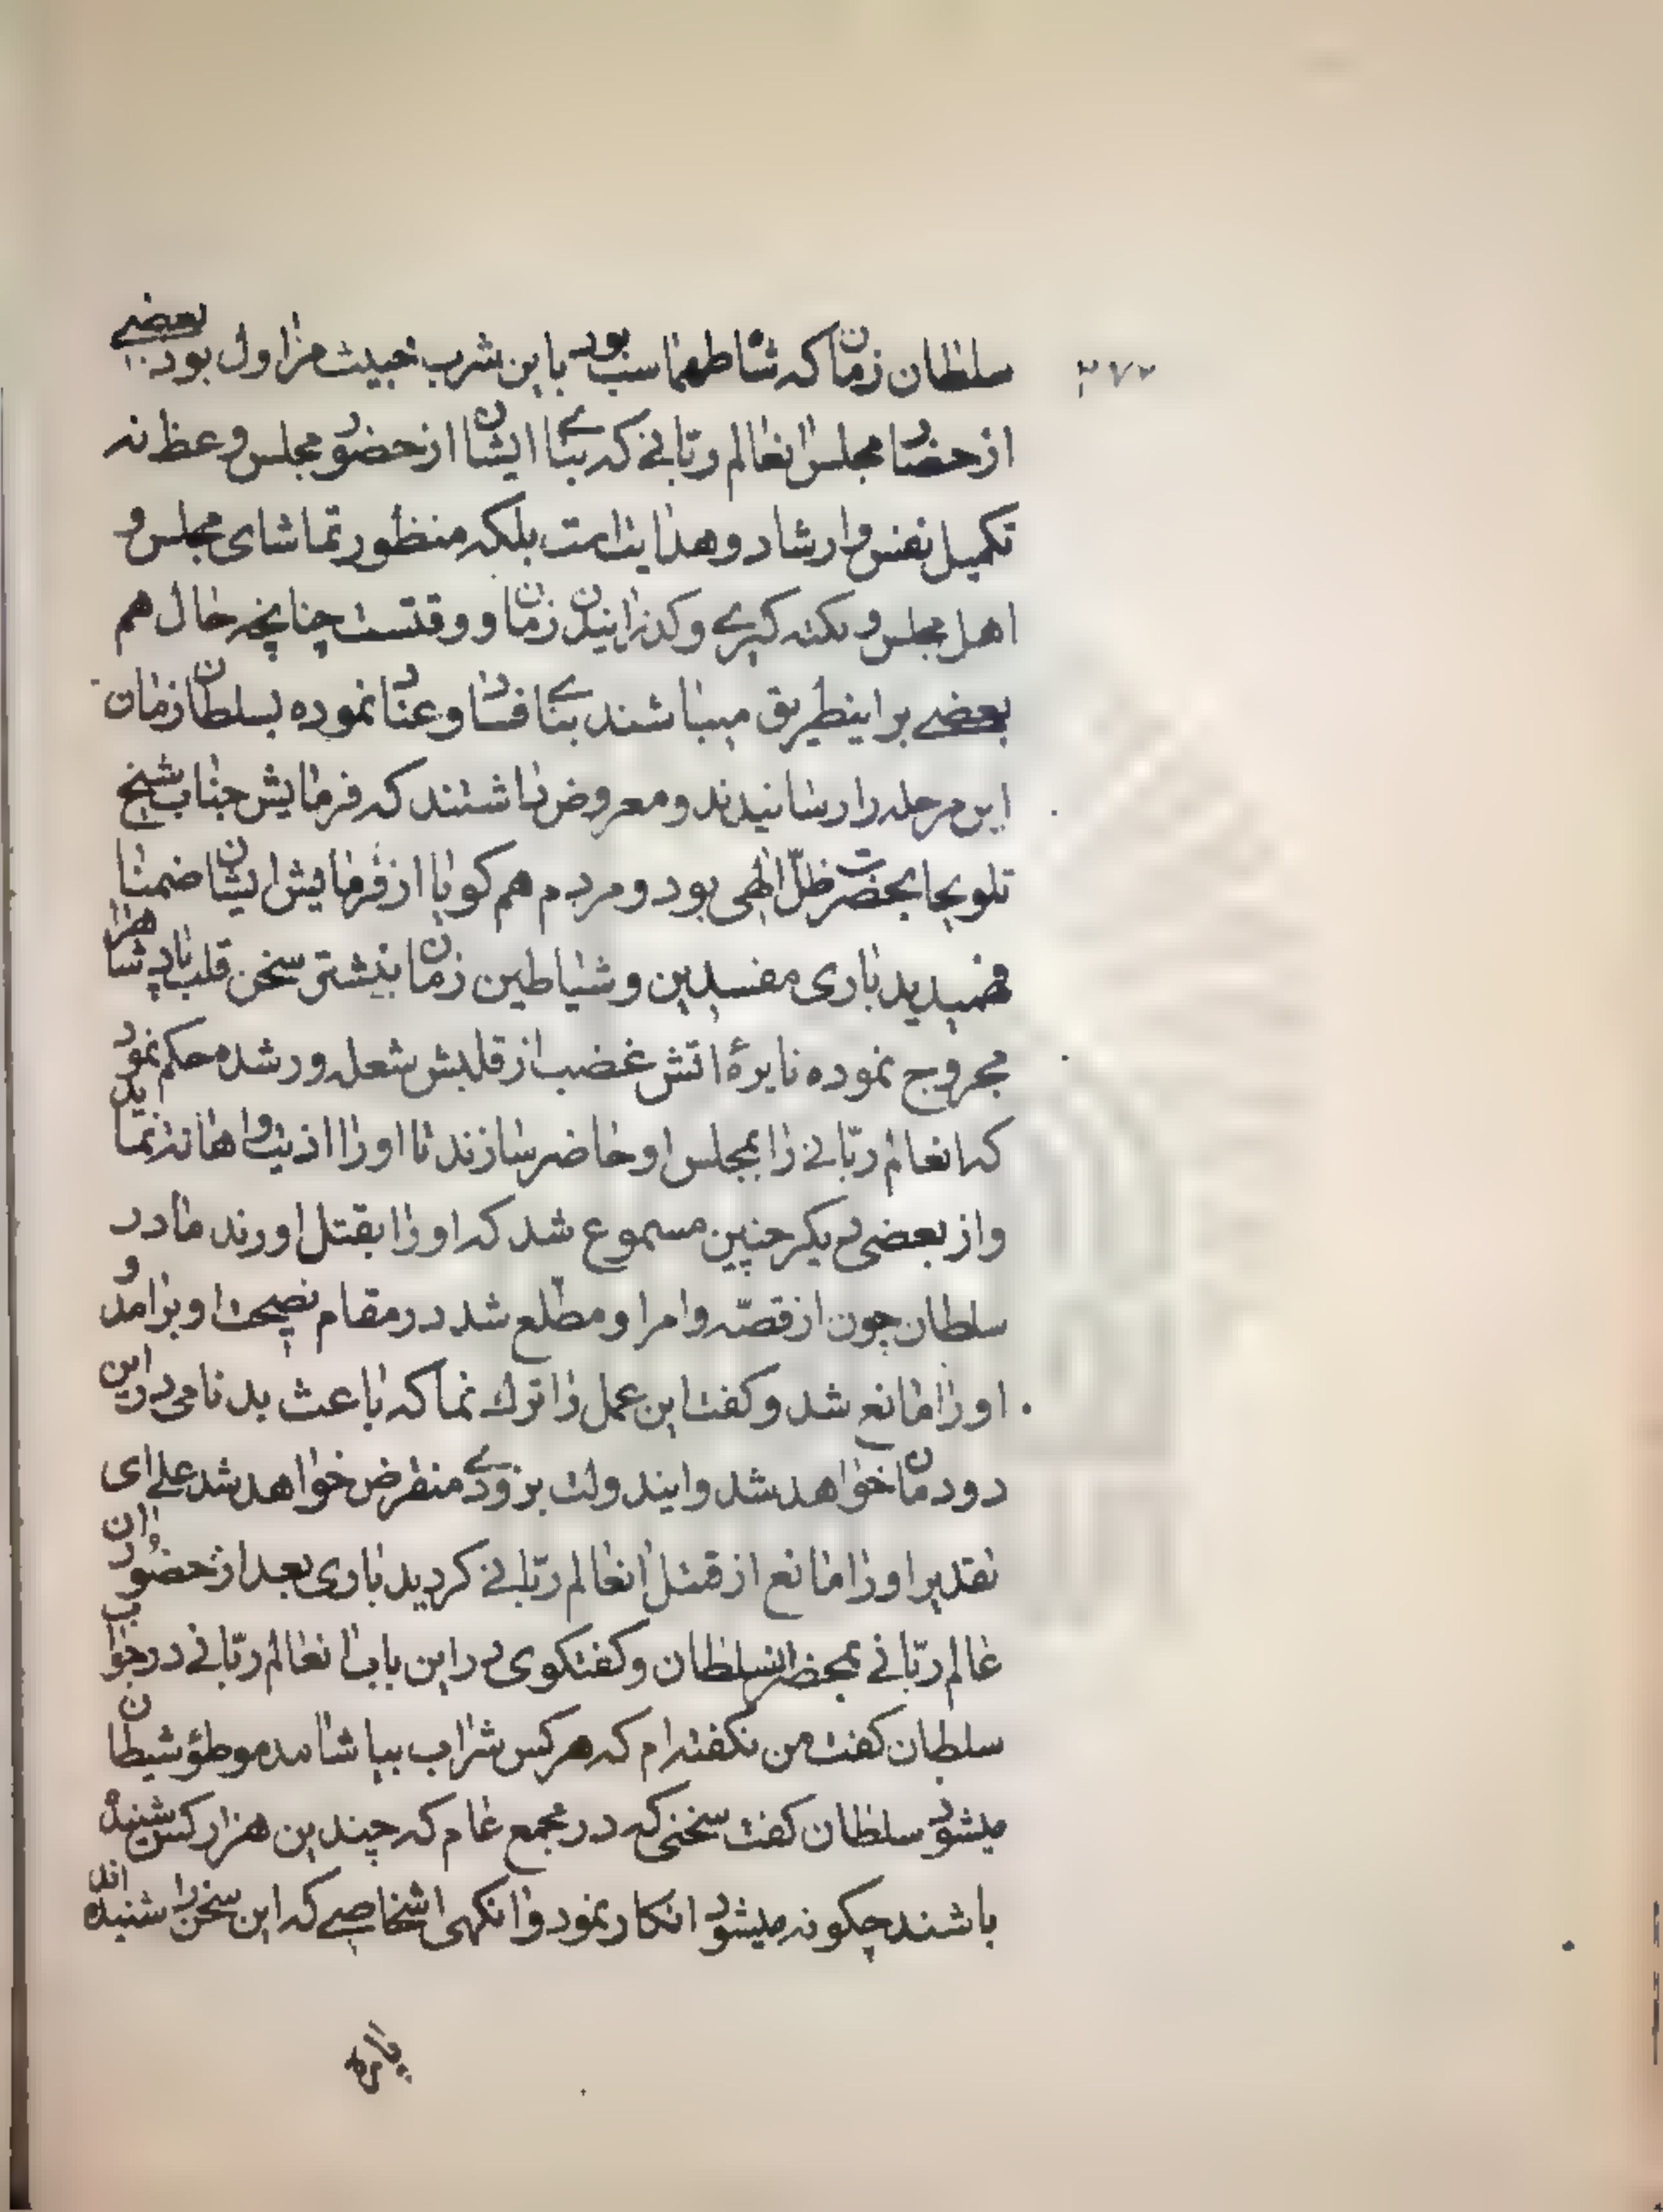 ۲۷۲
سلطان زمان که شاه طهماسب بود باین شرب خبیث مزاول بود بعضی
از حضار مجلس انعالم ربّانی که بنای ایشان از حضور مجلس وعظ نه
تکمیل نفس و ارشاد و هدایتست بلکه منظور تماشای مجلس و
اهل مجلس و نکته کیری و کذرانیدن زمان و وقتست چنانچه حال هم
بعضی براینطریق میباشند بنای فساد و عناد نموده بسلطان زمان
این مرحله را رسانیدند و معروض داشتند که فرمایش جناب شیخ
تلویحا بحضرت ظلّ الهی بود و مردم هم کویا از فرمایش ایشان ضمنا
فهمیدید باری مفسدین و شیاطین زمان بنیشتی سخن قلب پادشاه را
مجروح نموده نایرهٔ اتش غضب از قلبش شعله ور شده حکم نمود
که انعالم ربّانی را بمجلس او حاضر سازند تا او را اذیت و اهانت نماید
و از بعضی دیکر چنین مسموع شد که او را بقتل اورند مادر
سلطان چون از قصّه و امر او مطلع شد در مقام نصیحت او برامد و
او را مانع شد و کفت این عمل را ترك نما که باعث بدنامی در این
دودمان خواهد شد و ایندولت بزودی منقرض خواهد شد علی ای
تقدیر او را مانع از قتل انعالم ربّانی کردید باری بعد از حضور ان
عالم ربّانی بمحضر السلطان و کفتکوی در این باب انعالم ربّانی در جواب
سلطان کفت من نکفته ام که هر کس شراب بیاشامد موطؤ شیطان
میشود سلطان کفت سخنی که در مجمع عام که چندین هزار کس شنیده
باشند چکونه میشود انکار نمود وانکهی اشخاصی که این سخن را شنیده اند